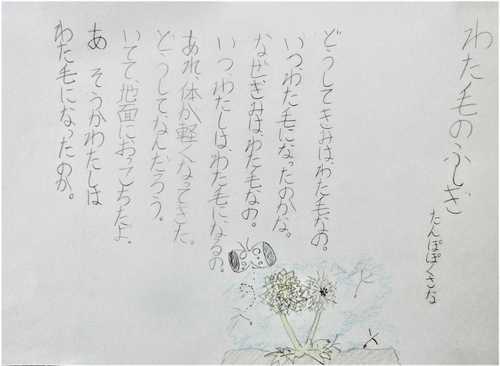 わた毛のふしぎ
たんぽぽくさな
どうしてきみはわた毛なの。
いつわた毛になったのかな。
なぜきみはわた毛なの。
いつ、わたしは、わた毛になるの。
あれ、体が軽くなってきた。
どうしてなんだろう。
いてて、地面におっこちたよ。
あ そうかわたしは
わた毛になったのか。